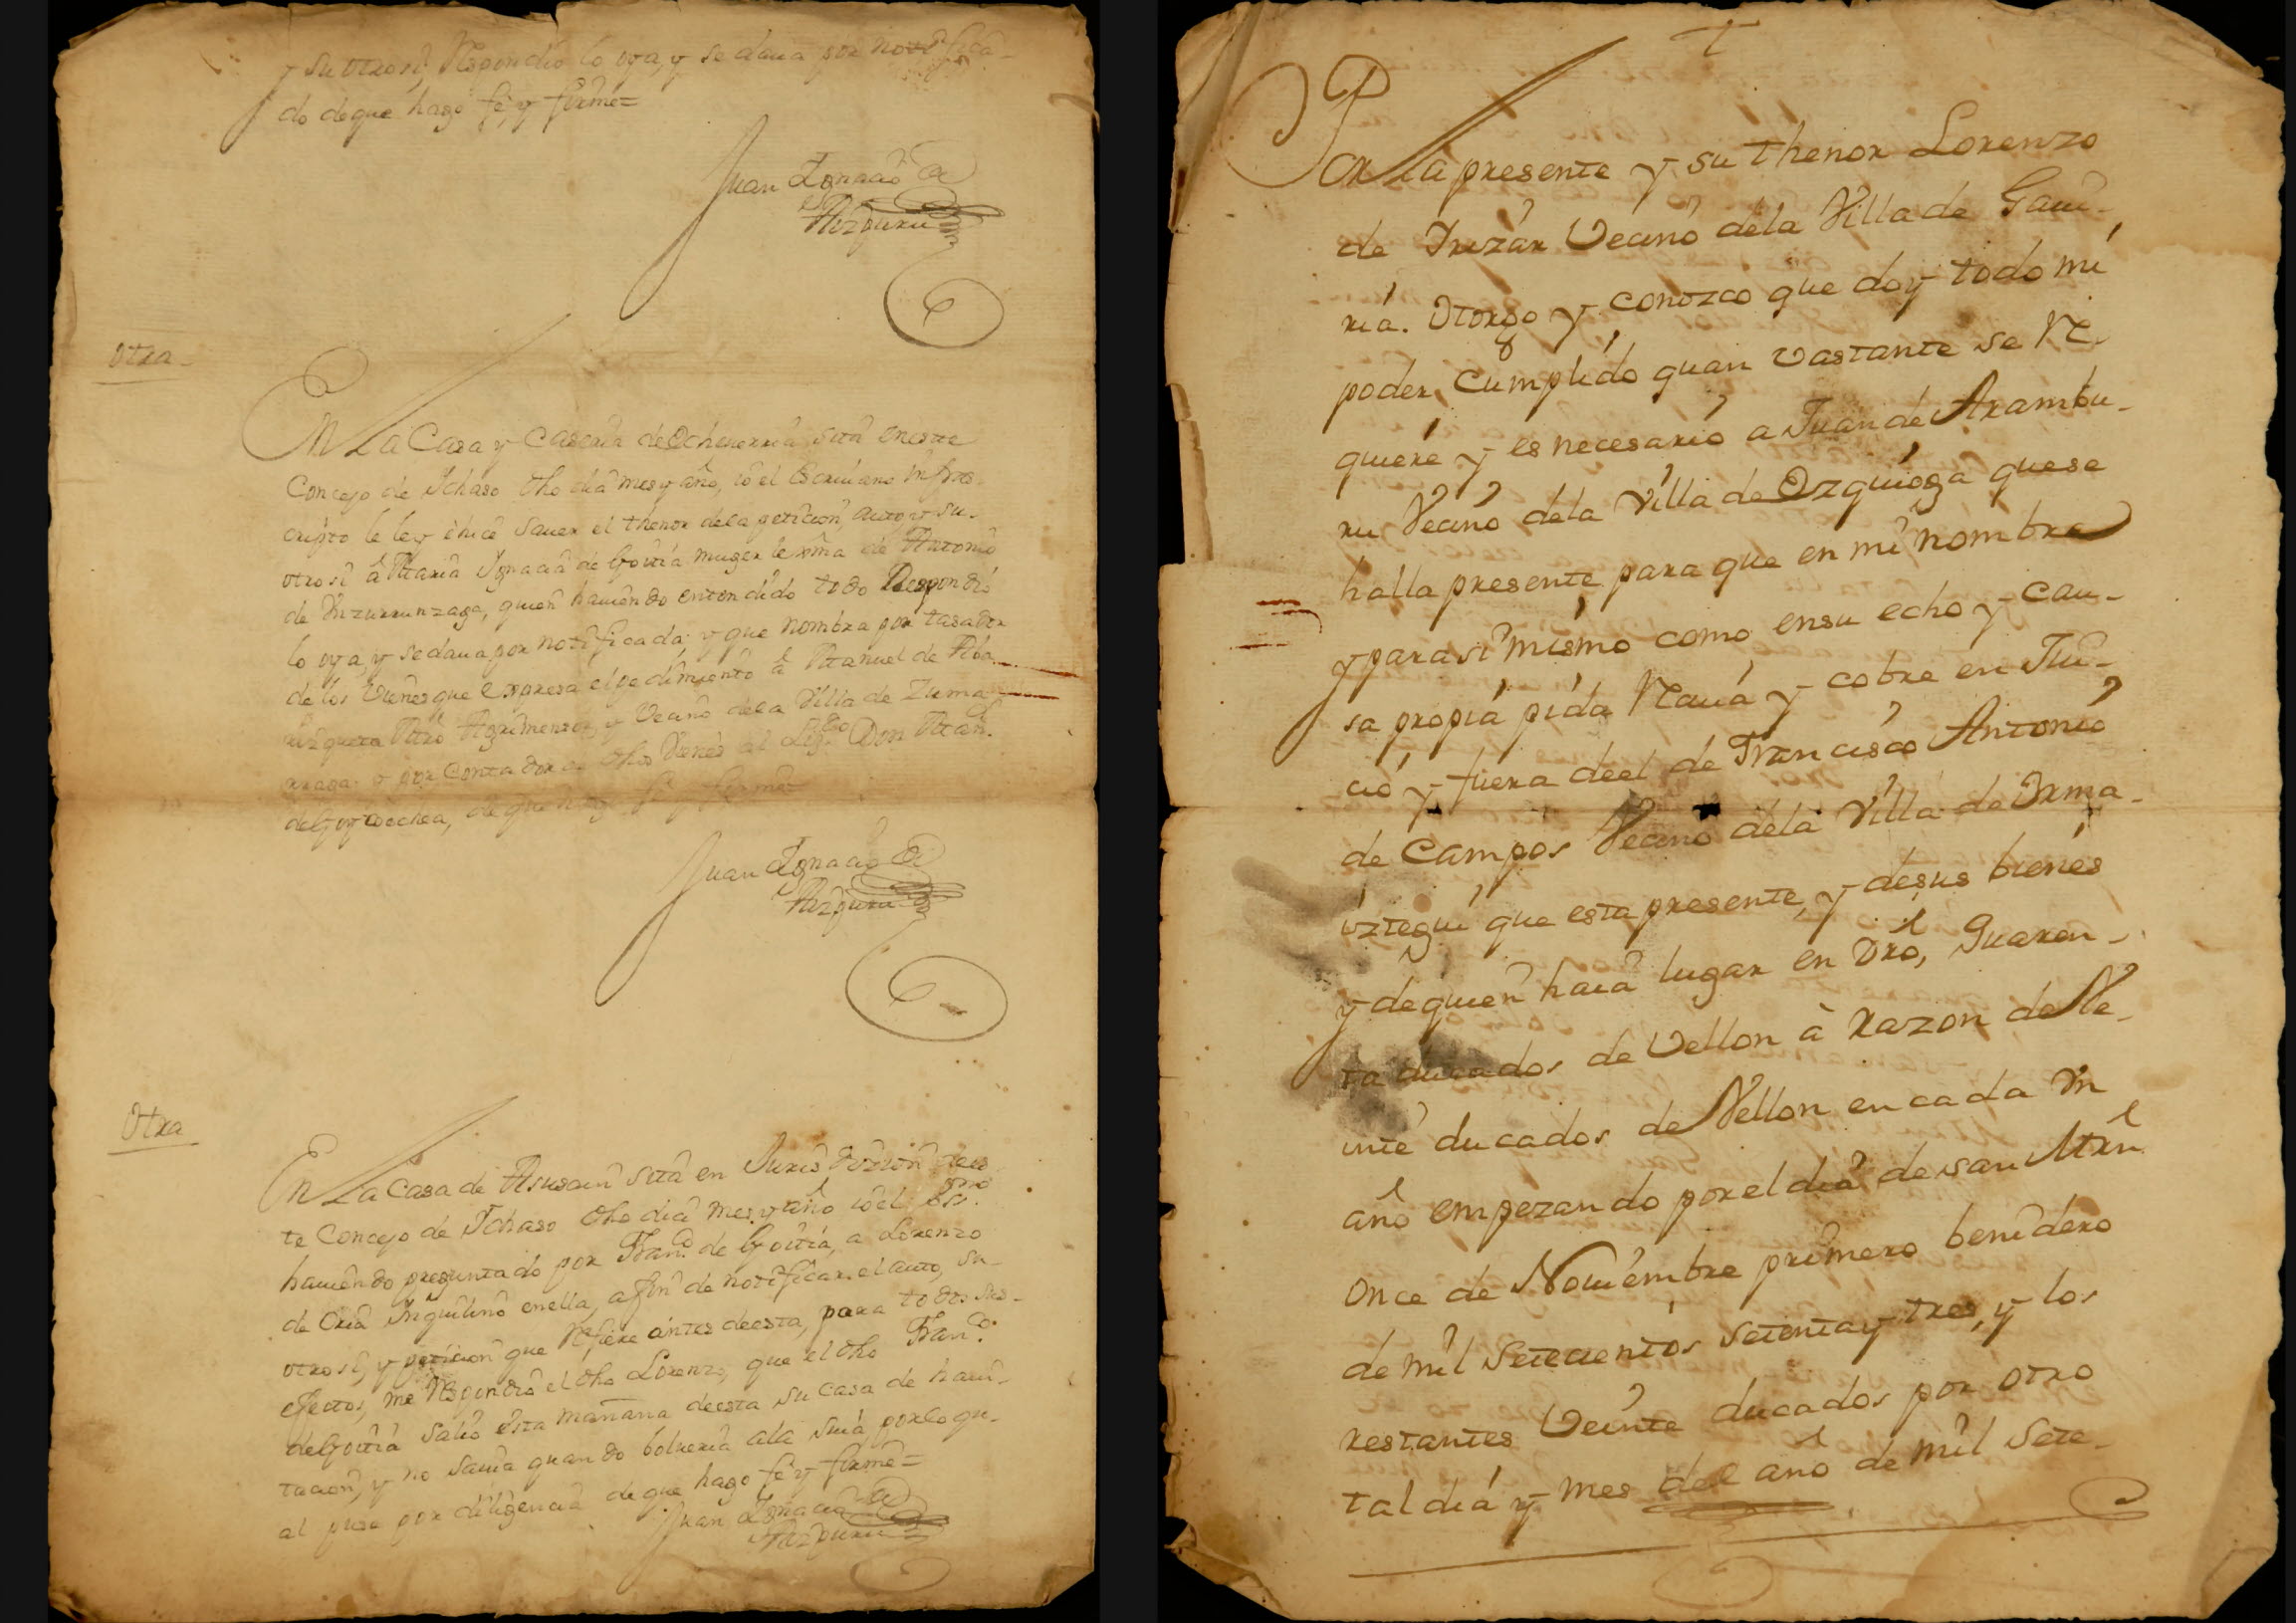 y su otrosi, Respondio lo oya, y se daua por notifica-
do de que hago fé, y firmé=
Juan Ignacio de
Aizpuru
Otra
En La Casa y Caseria de Echeuerria sita en este
Concejo de Ichaso dho dia mes y año, io el Escriuano infras-
cripto le ley é hice sauer el thenor dela peticion, auto, y su-
otrosi â Maria Ignacia de Goitia muger lexma de Antonio
de Inzurrunzaga, quien hauiendo entendido todo Respondió
lo oya, y se daua por notificada; y que nombra por tasador
de los Vienes que expresa el pedimiento â Manuel de
Mro Agrimensor y Vecino dela Villa de Zuma
rraga. y por Contador de dhos Vienes al Lizdo Don Man.
de Goycoechea, de que hago fé y firmé
Juan Ignacio de
Aizpuru
Otra
En La Casa de Asusain sita en Jurisdizion dees
te Concejo de Ichaso dho dia mes y año io el Essno
hauiendo preguntado por Franco de Goitia, a Lorenzo
de Oria Inquilino en ella, a fin de notificar el auto, su-
otrosi, y peticion que Refiere antes de esta, para todos sus-
efectos, me Respondió el dho Lorenzo, que el dho Franco
de Goitia salió esta mañana de esta su casa de haui-
tacion, y no sauia quando bolueria ala suia, por lo qu-
al puse por diligencia de que hago fé y firmé=
Juan Ignacio de
Aizpuru
Por La presente y su thenor Lorenzo
de Irizar Vecino dela Villa de Gaui-
ria. Otorgo y conozco que doy todo mi
poder Cumplido quan vastante se Re-
quiere y es necesario a Juan de Arambu-
ru Vecino dela Villa de Ezquioga que se
halla presente para que en mi nombre
y para si mismo como en su echo y cau-
sa propia pida Reciua y cobre en Jui-
cio y fuera deel de Francisco Antonio
de Campos Vecino dela Villa de Orma-
iztegui que esta presente, y de sus bienes
y de quien haia lugar en Dro, Quaren-
ta ducados de Vellon à razon de Ve-
inte ducados de Vellon en cada Vn
año empezando por el dia de san Mrn
once de Nouiembre primero benidero
de mil Setecientos Setenta y tres, y los
restantes Veinte ducados por otro
tal dia y mes del año de mil Sete-